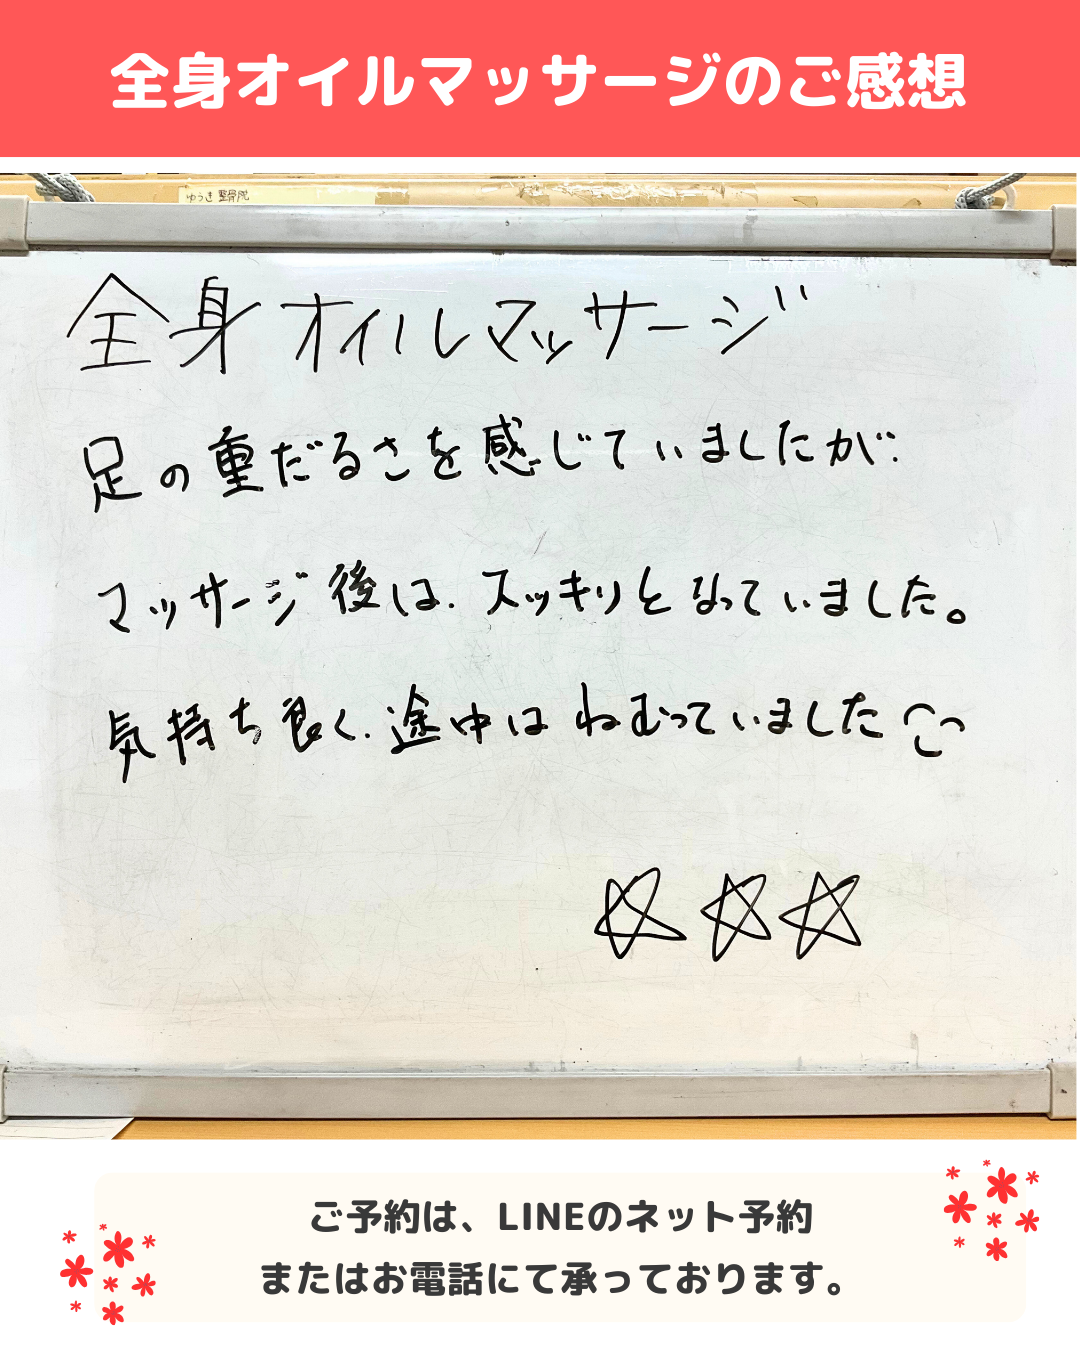 全身オイルマッサージのご感想
ゆうき整骨院
全身オイルマッサージ
足の重だるさを感じていましたが、
マッサージ後は、スッキリとなっていました。
気持ち良く、途中はねむっていました
ご予約は、LINEのネット予約
またはお電話にて承っております。